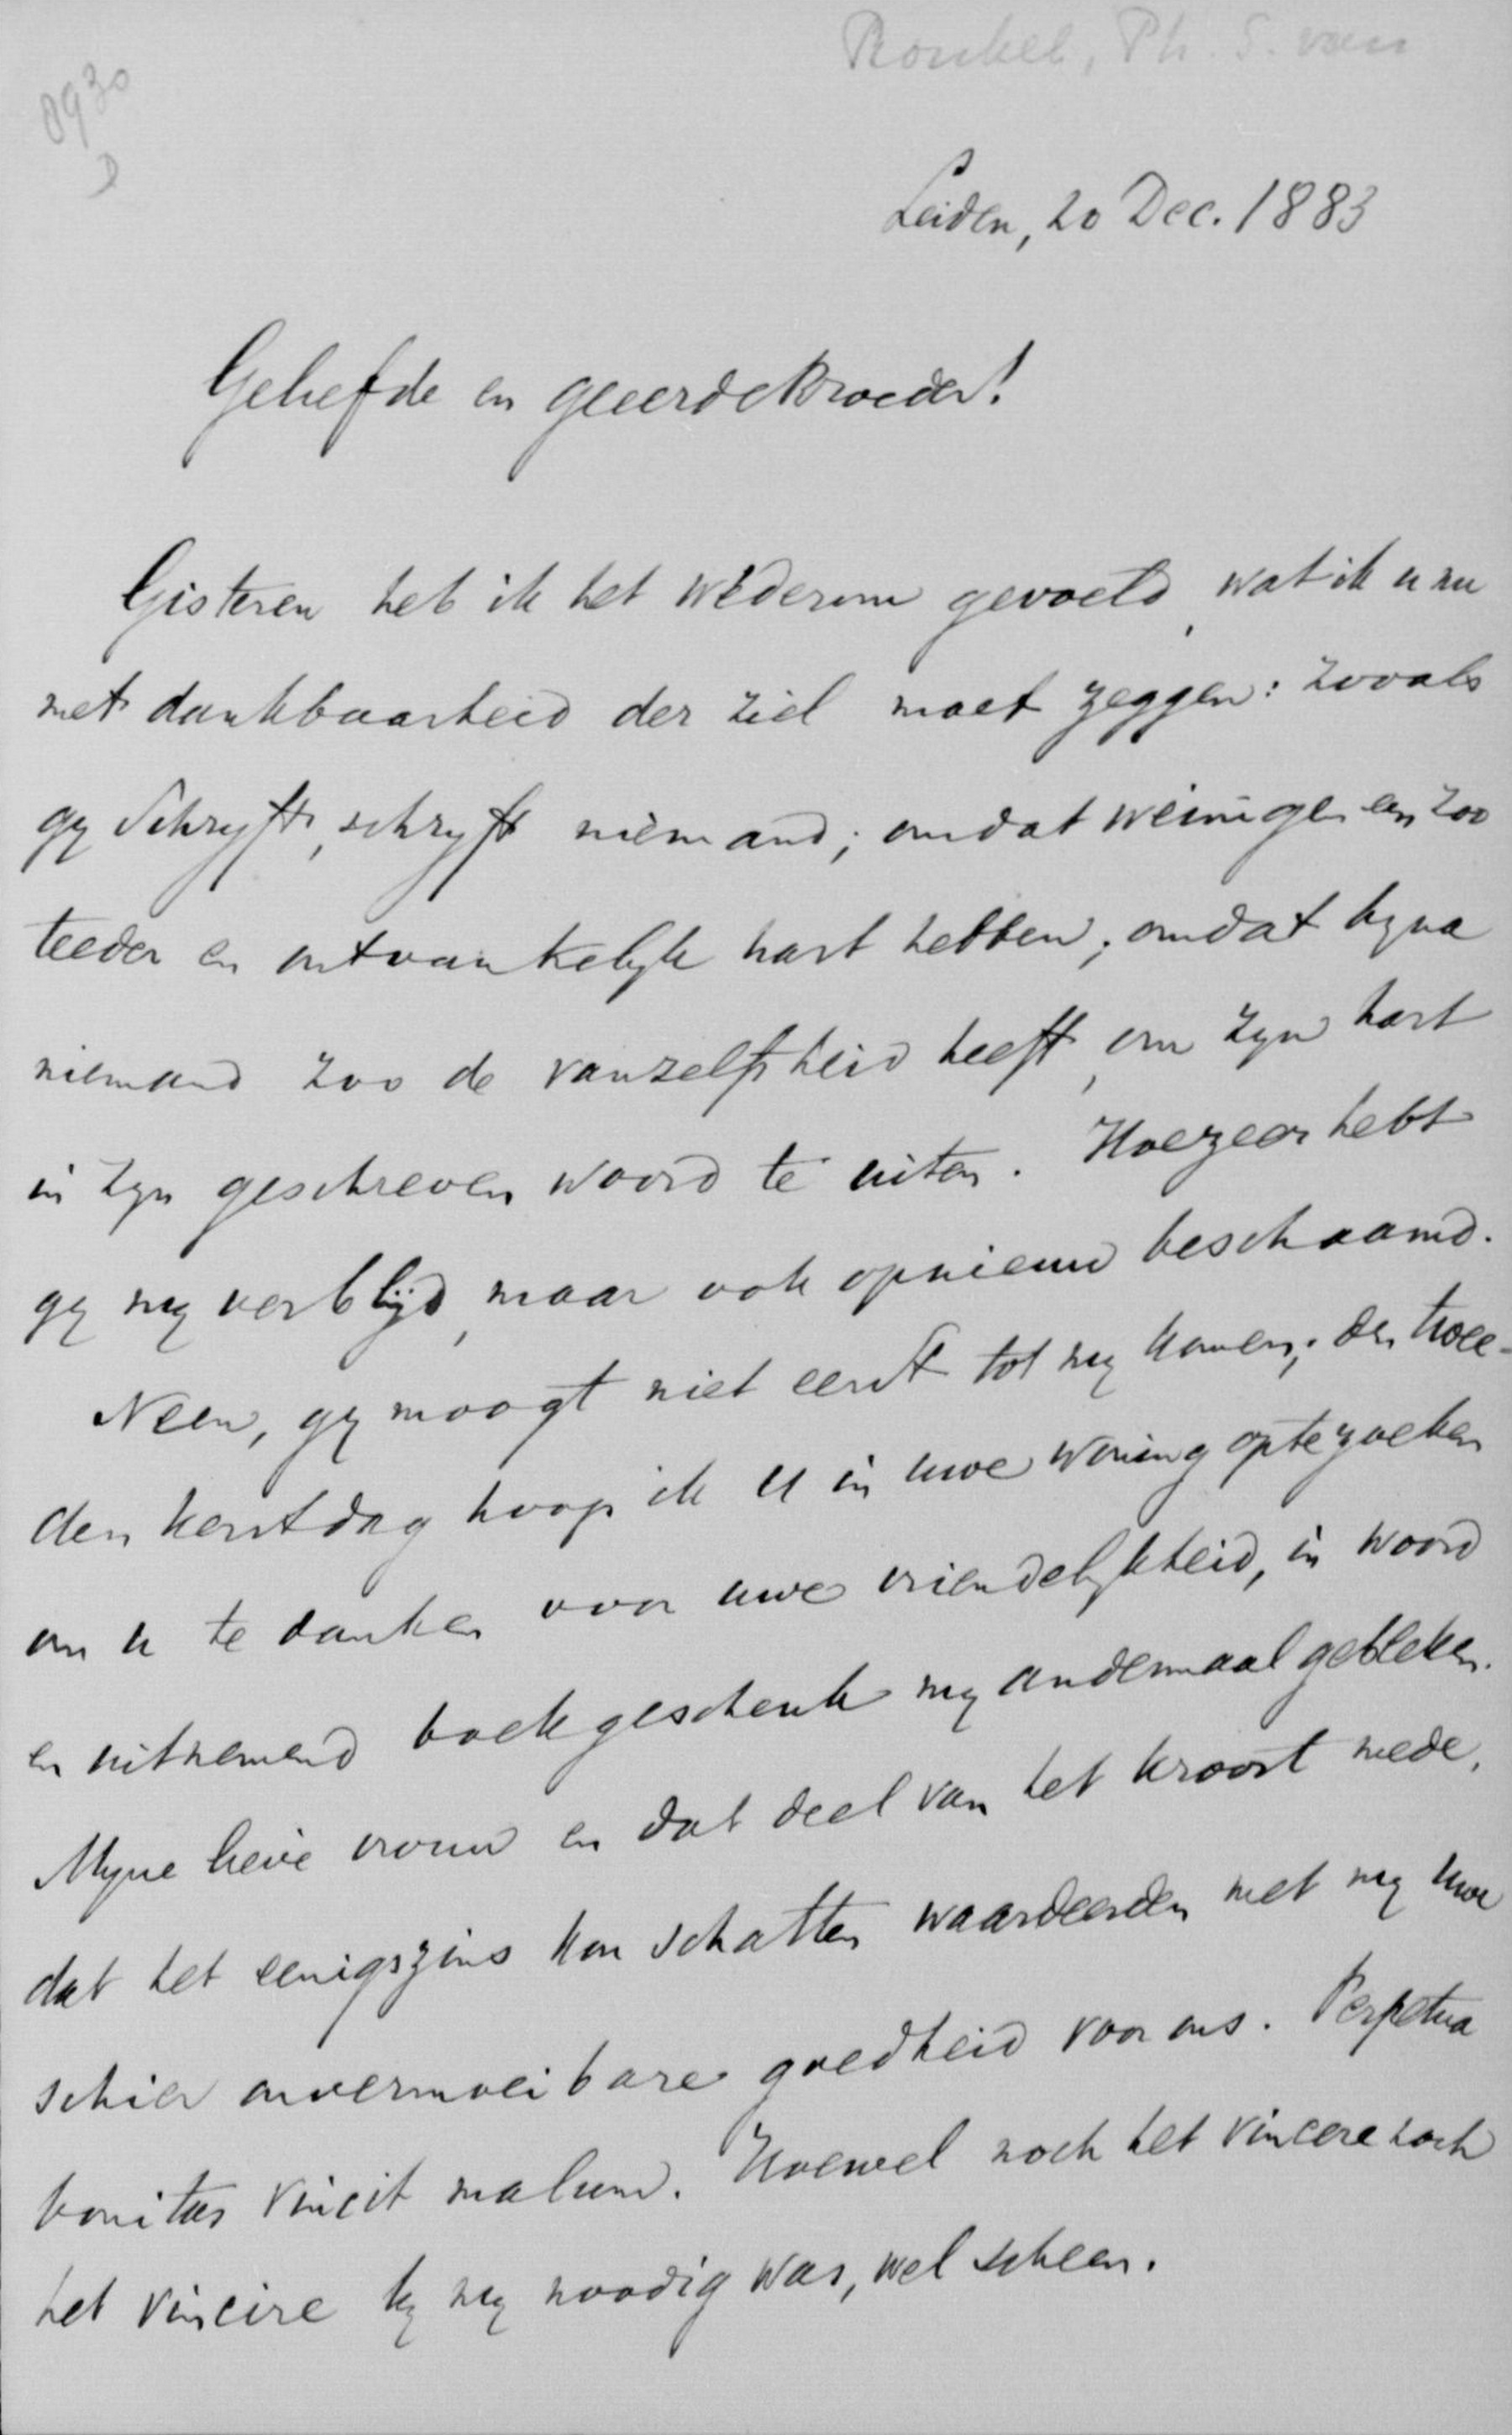 Ronkel, Ph. S. van
0930
D
Leiden, 20 Dec. 1883
Geliefde en geeerde Broeder!
Gisteren heb ik het wederom gevoeld, wat ik u nu
met dankbaarheid der ziel moet zeggen: zooals
gy schryft, schryft niemand; omdat weinigen een zoo
teeder en ontvankelyk hart hebben; omdat byna
niemand zoo de vanzelfsheid heeft, om zyn hart
in zyn geschreven woord te uiten. Hoezeer hebt
gy my verblijd, maar ook opnieuw beschaamd.
Neen, gy moogt niet eerst tot my komen; den twee-
den kerstdag hoop ik u in uwe woning optezoeken
om u te danken voor uwe vriendelykheid, in woord
en uitnemend boekgeschenk my andermaal gebleken.
Myne lieve vrouw en dat deel van het kroost mede,
dat het eenigszins kon schatten waardeerden met my uwe
schier onvermoeibare goedheid voor ons. Perpetua
bonitas vincit malum. Hoewel noch het vincere noch
het vincire by my noodig was, wel scheen.